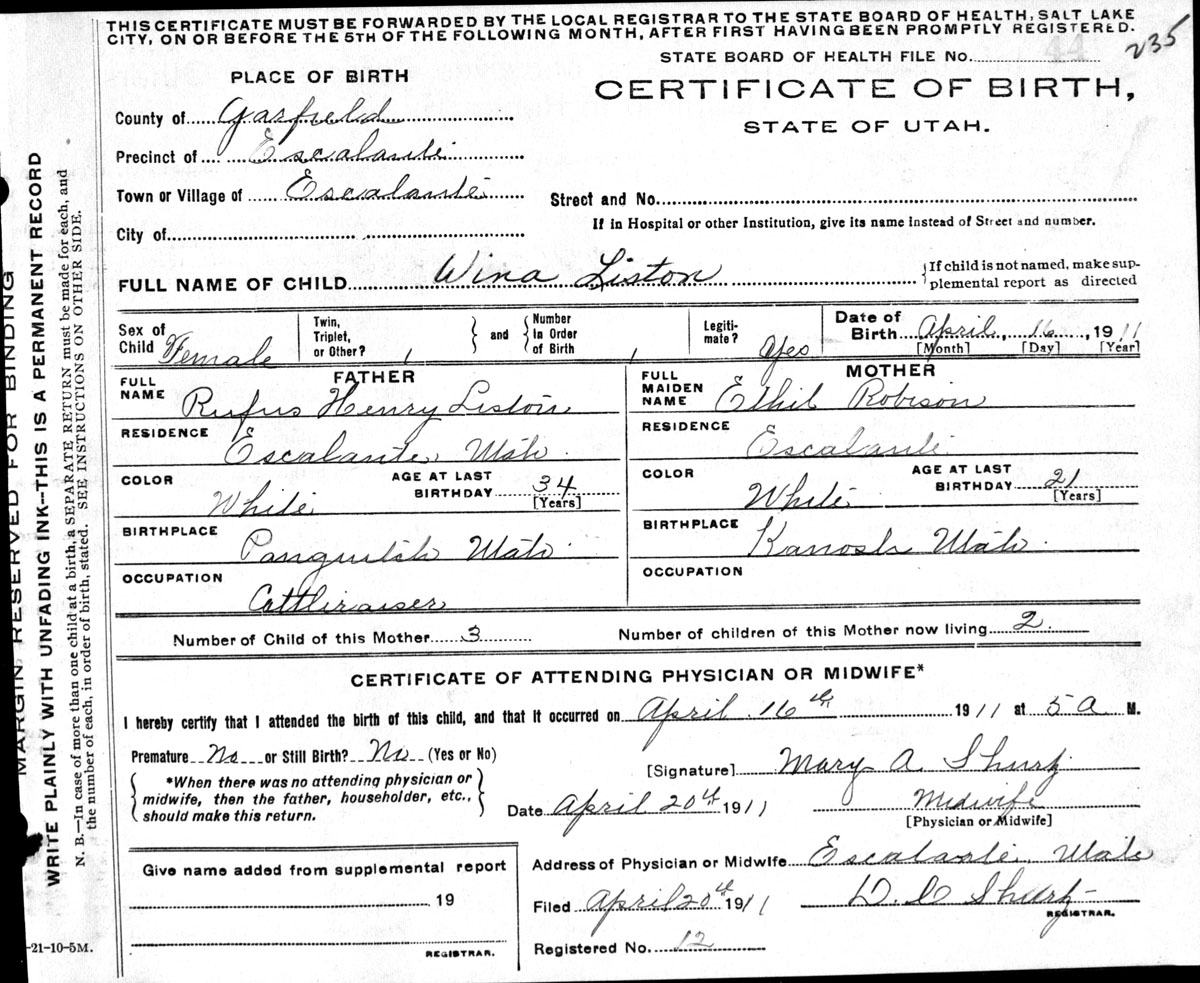 THIS CERTIFICATE MUST BE FORWARDED BY THE LOCAL REGISTRAR TO THE STATE BOARD OF HEALTH, SALT LAKE
CITY, ON OR BEFORE THE 5TH OF THE FOLLOWING MONTH, AFTER FIRST HAVING BEEN PROMPTLY REGISTERED.
235
44
STATE BOARD OF HEALTH FILE No.
PLACE OF BIRTH
CERTIFICATE OF BIRTH,
STATE OF UTAH.
County of Garfield
Precinct of Escalante
Town or Village of Escalante
Street and No.
If in Hospital or other Institution, give its name instead of Street and number.
City of
FULL NAME OF CHILD Wina Liston
{If child is not named, make sup-
plemental report as directed
Sex of Child Female
Twin, Triplet, or Other? /
} and { Number In Order of Birth /
Legiti-mate? Yes
Date of Birth April, 16, 1911
[Month] [Day] [Year]
FATHER
FULL NAME Rufus Henry Liston
RESIDENCE Escalante Utah
COLOR White
AGE AT LAST BIRTHDAY 34 [Years]
BIRTHPLACE Panguitch Utah
OCCUPATION Cattleraiser
MOTHER
FULL MAIDEN NAME Ethel Robison
RESIDENCE Escalante
COLOR White
AGE AT LAST BIRTHDAY 21 [Years]
BIRTHPLACE Kanosh Utah
OCCUPATION
Number of Child of this Mother 3
Number of children of this Mother now living 2
CERTIFICATE OF ATTENDING PHYSICIAN OR MIDWIFE*
I hereby certify that I attended the birth of this child, and that it occurred on April 16th 1911 at 5 A M.
Premature No or Still Birth? No (Yes or No)
{ *When there was no attending physician or
midwife, then the father, householder, etc.,
should make this return. }
[Signature] Mary A. Shurtz
Date April 20th 1911
Midwife
[Physician or Midwife]
Address of Physician or Midwife Escalante, Utah
Filed April 20th 1911
Shurtz
REGISTRAR.
Registered No. 12
Give name added from supplemental report
19
REGISTRAR.
-21-10-5M.
MARGIN RESERVED FOR BINDING
WRITE PLAINLY WITH UNFADING INK--THIS IS A PERMANENT RECORD
N. B.—In case of more than one child at a birth, a SEPARATE RETURN must be made for each, and
the number of each, in order of birth, stated. SEE INSTRUCTIONS ON OTHER SIDE.